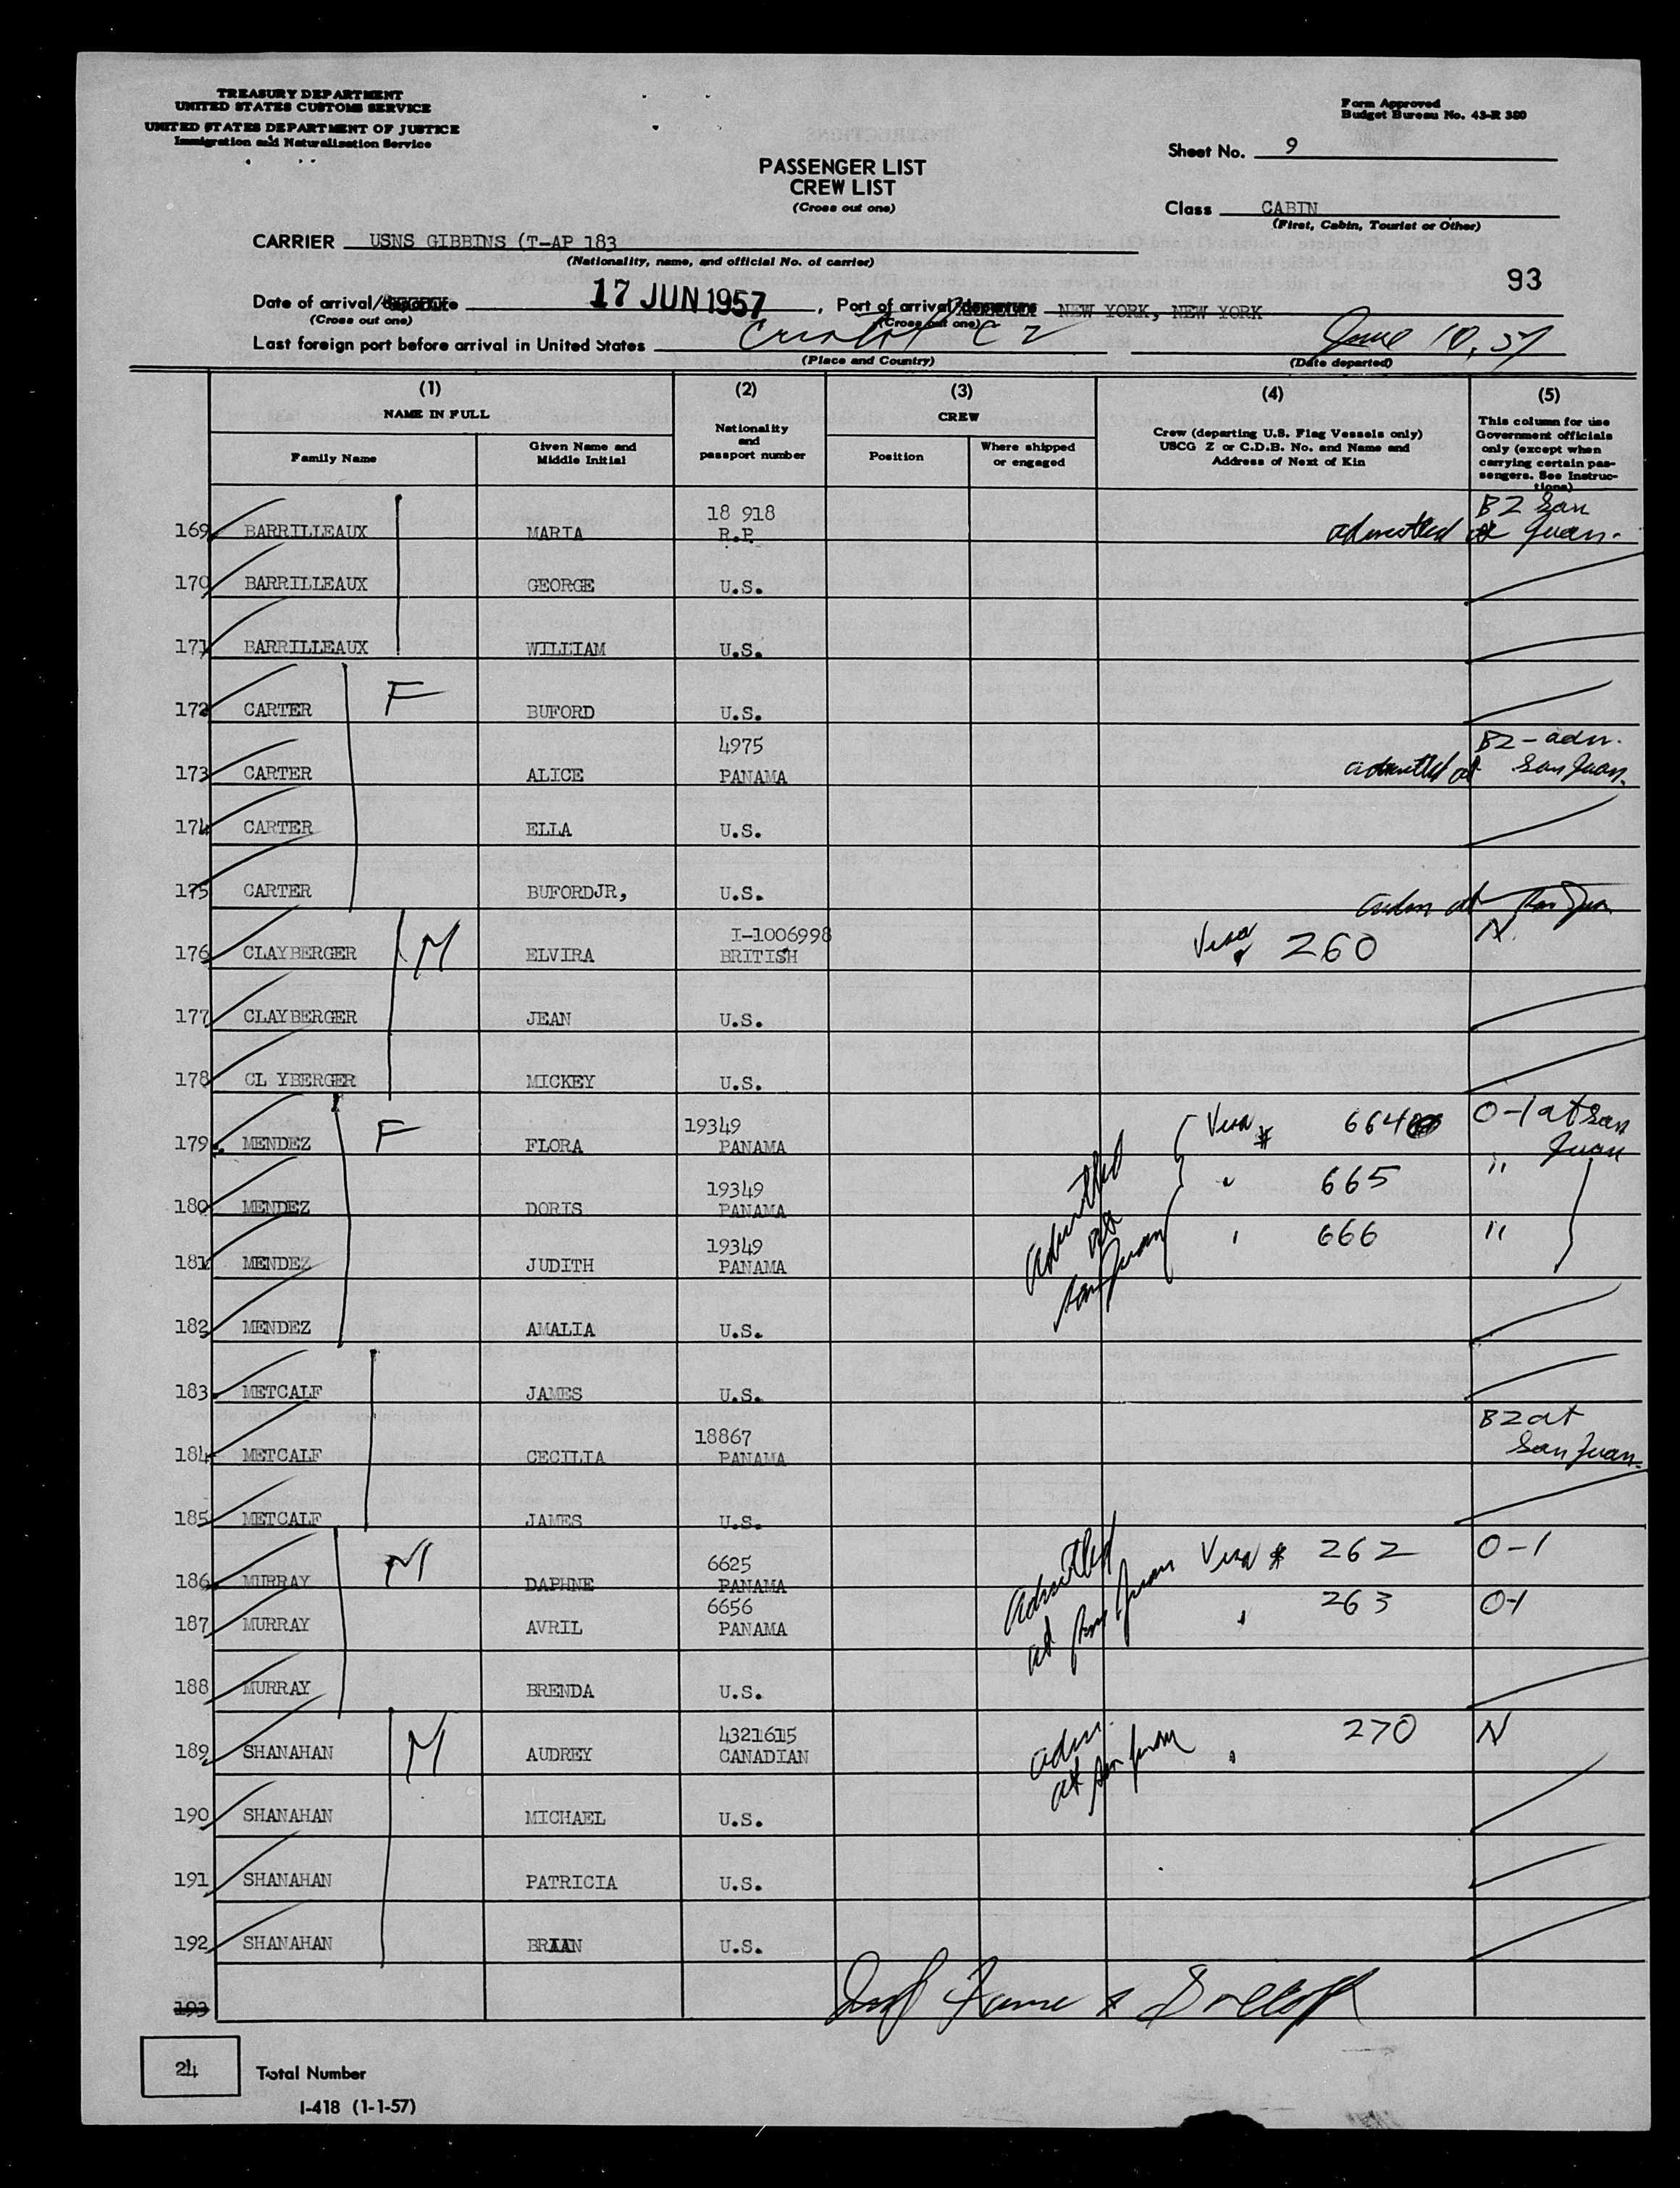 TREASURY DEPARTMENT
UNITED STATES CUSTOMS SERVICE
UNITED STATES DEPARTMENT OF JUSTICE
Immigration and Naturalization Service
Form Approved
Budget Bureau No. 43-R 380
Sheet No. 9
PASSENGER LIST
CREW LIST
(Cross out one)
Class CABIN
(First, Cabin, Tourist or Other)
CARRIER USNS GIBBINS (T-AP 183
(Nationality, name, and official No. of carrier)
93
Date of arrival/departure 17 JUN 1957, Port of arrival/departure NEW YORK, NEW YORK
(Cross out one) (Cross out one)
Last foreign port before arrival in United States Cristobal C Z June 10, 57
(Place and Country) (Date departed)
(1) (2) (3) (4) (5)
NAME IN FULL Nationality and passport number CREW Crew (departing U.S. Flag Vessels only) USCG Z or C.D.B. No. and Name and Address of Next of Kin This column for use Government officials only (except when carrying certain passengers. See Instructions)
Family Name Given Name and Middle Initial Position Where shipped or engaged
18 918 B2 San
169 BARRILLEAUX MARIA R.P. admitted at Juan.
170 BARRILLEAUX GEORGE U.S.
171 BARRILLEAUX WILLIAM U.S.
172 CARTER F BUFORD U.S.
4975 B2-adm.
173 CARTER ALICE PANAMA admitted at San Juan.
174 CARTER ELLA U.S.
175 CARTER BUFORDJR, U.S.
adm at San Juan
I-1006998 N.
176 CLAYBERGER M ELVIRA BRITISH Visa # 260
177 CLAYBERGER JEAN U.S.
178 CL YBERGER MICKEY U.S.
19349 Visa # 664 O-1 at San
179 MENDEZ F FLORA PANAMA Juan
19349 " 665 "
180 MENDEZ DORIS PANAMA
19349 " 666 "
181 MENDEZ JUDITH PANAMA
admitted
at
San Juan
182 MENDEZ AMALIA U.S.
183 METCALF JAMES U.S.
18867 B2 at
184 METCALF CECILIA PANAMA San Juan.
185 METCALF JAMES U.S.
6625 Visa # 262 O-1
186 MURRAY M DAPHNE PANAMA
6656 " 263 O-1
187 MURRAY AVRIL PANAMA
admitted
at San Juan
188 MURRAY BRENDA U.S.
4321615 270 N
189 SHANAHAN M AUDREY CANADIAN
adm.
at San Juan
190 SHANAHAN MICHAEL U.S.
191 SHANAHAN PATRICIA U.S.
192 SHANAHAN BRIAN U.S.
193
24 Total Number
I-418 (1-1-57)